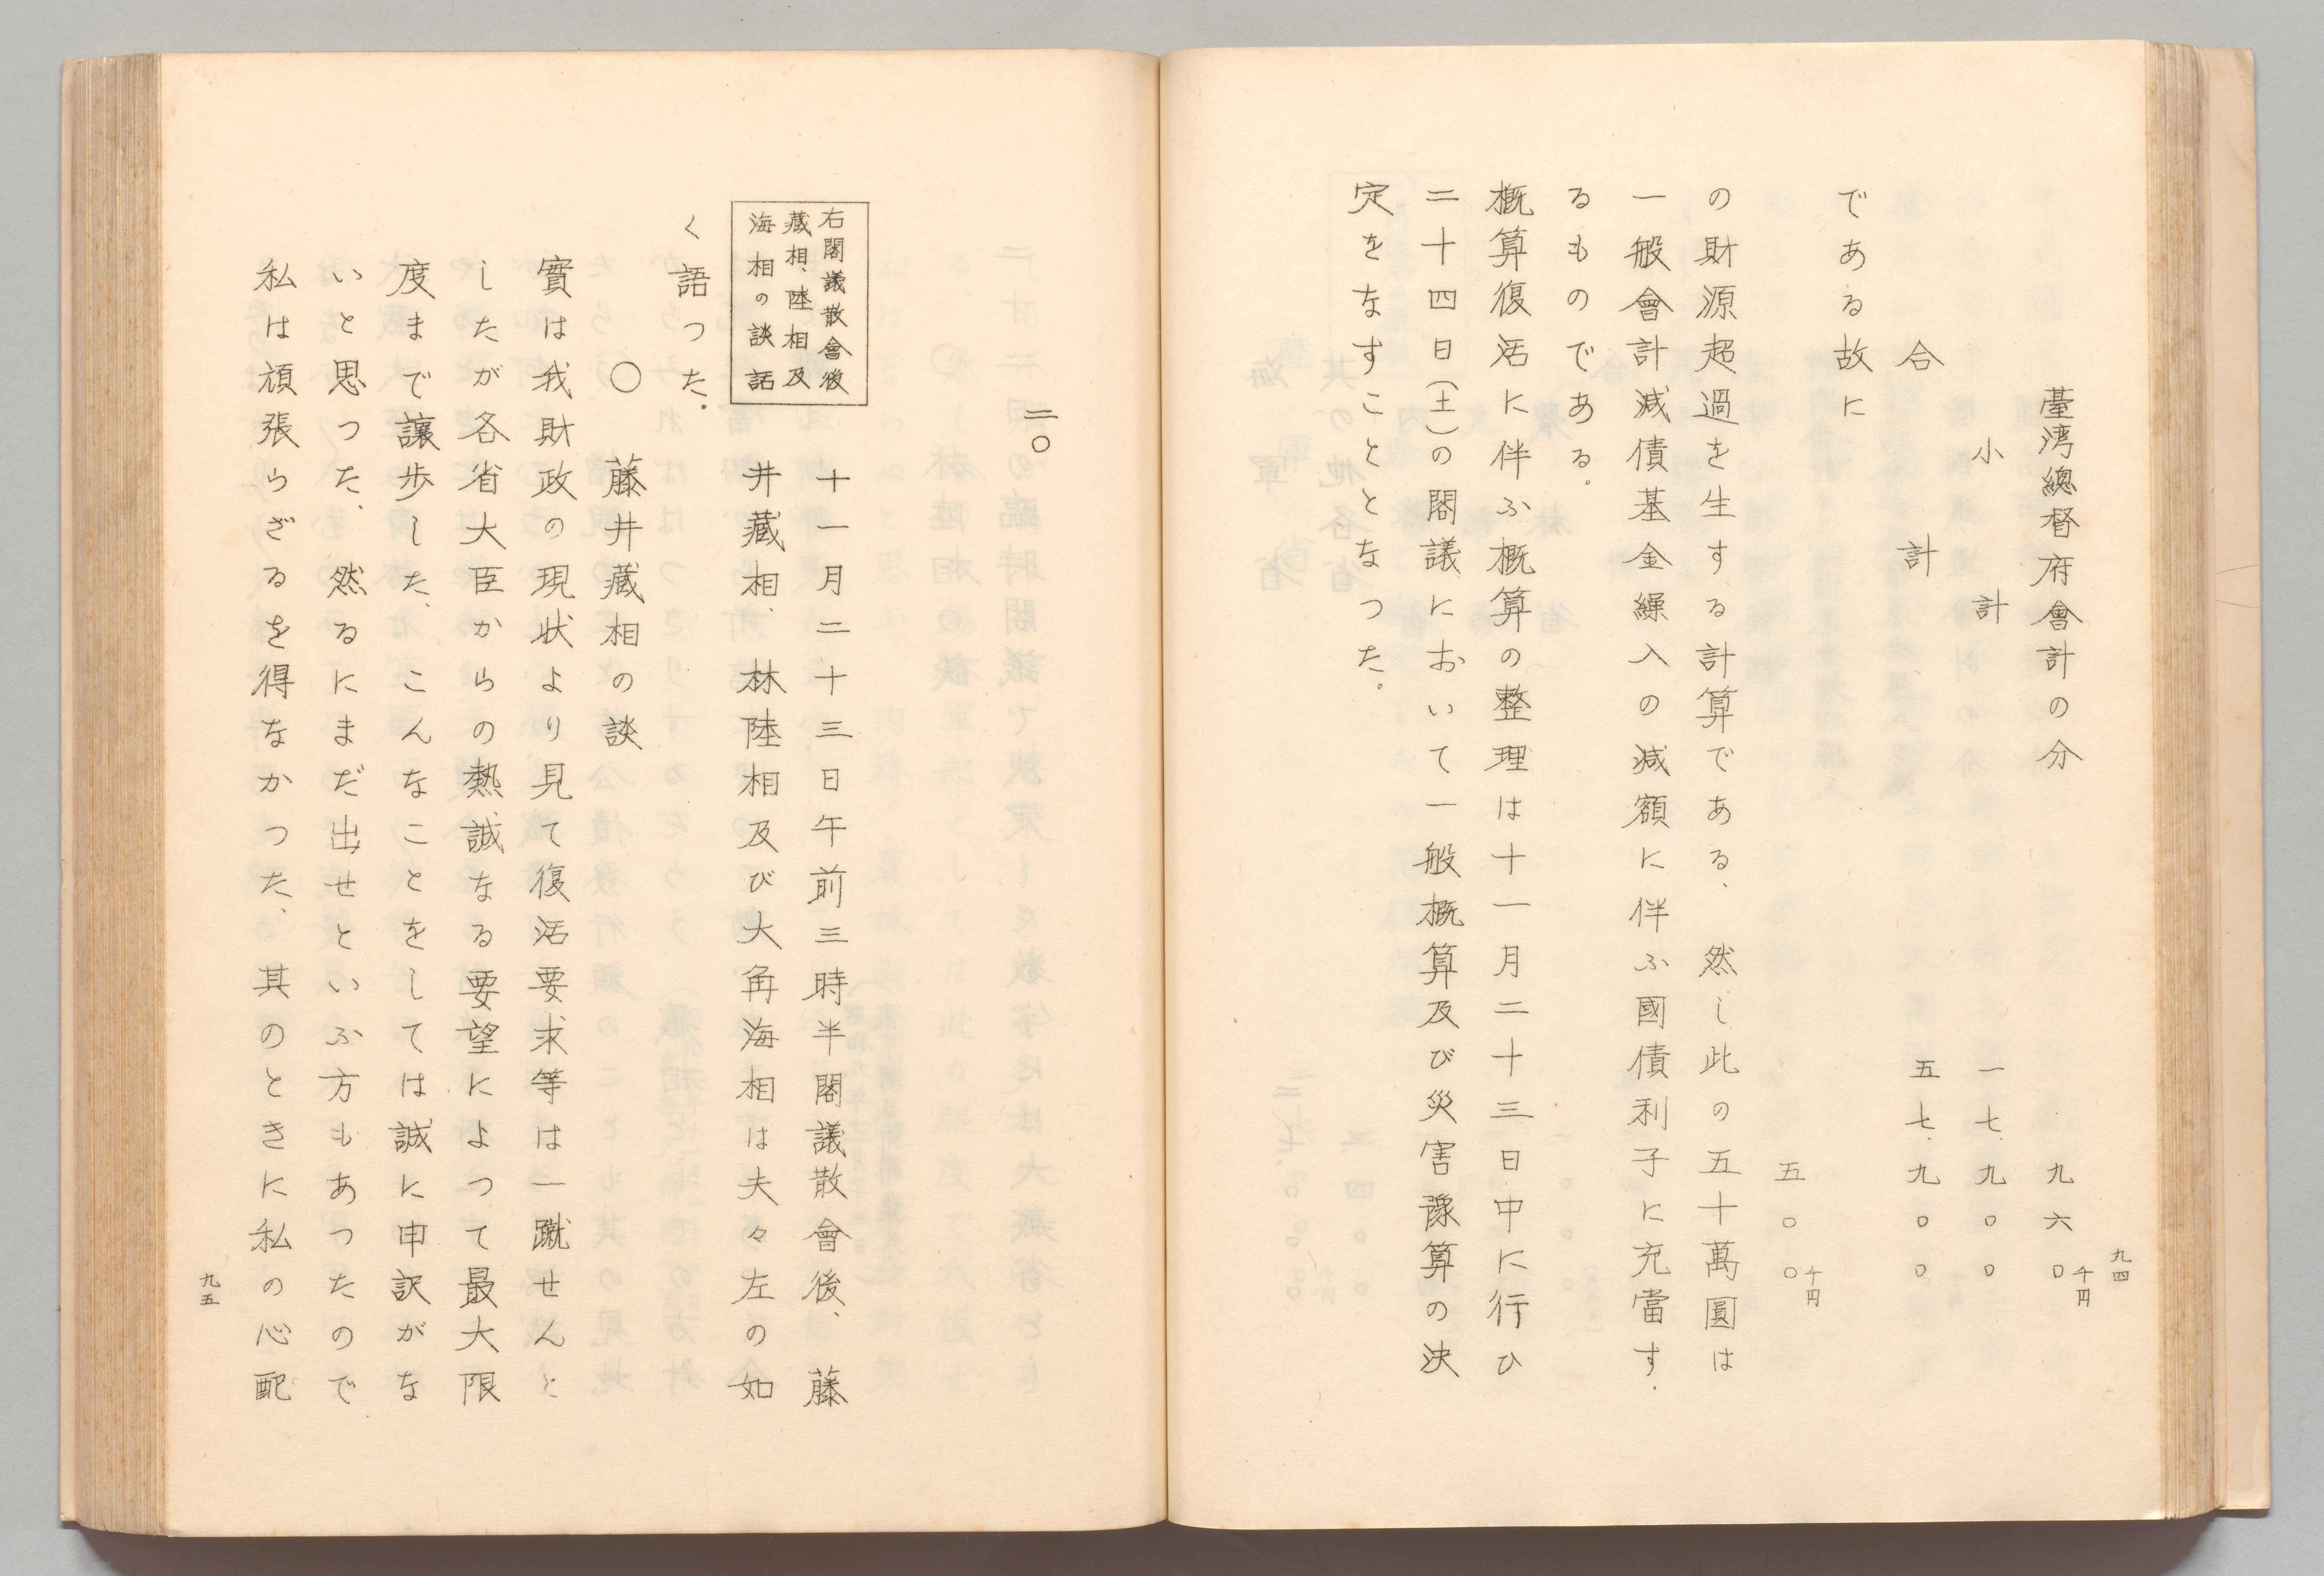 九四
臺湾總督府會計の分　九六〇千円
小計　一七、九〇〇
合計　五七、九〇〇
である故に
五〇〇千円
の財源超過を生する計算である、然し此の五十萬圓は
一般會計減債基金繰入の減額に伴ふ國債利子に充當す
るものである。
概算復活に伴ふ概算の整理は十一月二十三日中に行ひ
二十四日(土)の閣議において一般概算及び災害豫算の決
定をなすこととなつた。
二〇
右閣議散會後
藏相、陸相及
海相の談話
十一月二十三日午前三時半閣議散會後、藤
井藏相、林陸相及び大角海相は夫々左の如
く語つた。
〇　藤井藏相の談
實は我財政の現状より見て復活要求等は一蹴せんと
したが各省大臣からの熱誠なる要望によつて最大限
度まで讓歩した、こんなことをしては誠に申訳がな
いと思つた、然るにまだ出せといふ方もあつたので
私は頑張らざるを得なかつた、其のときに私の心配
九五